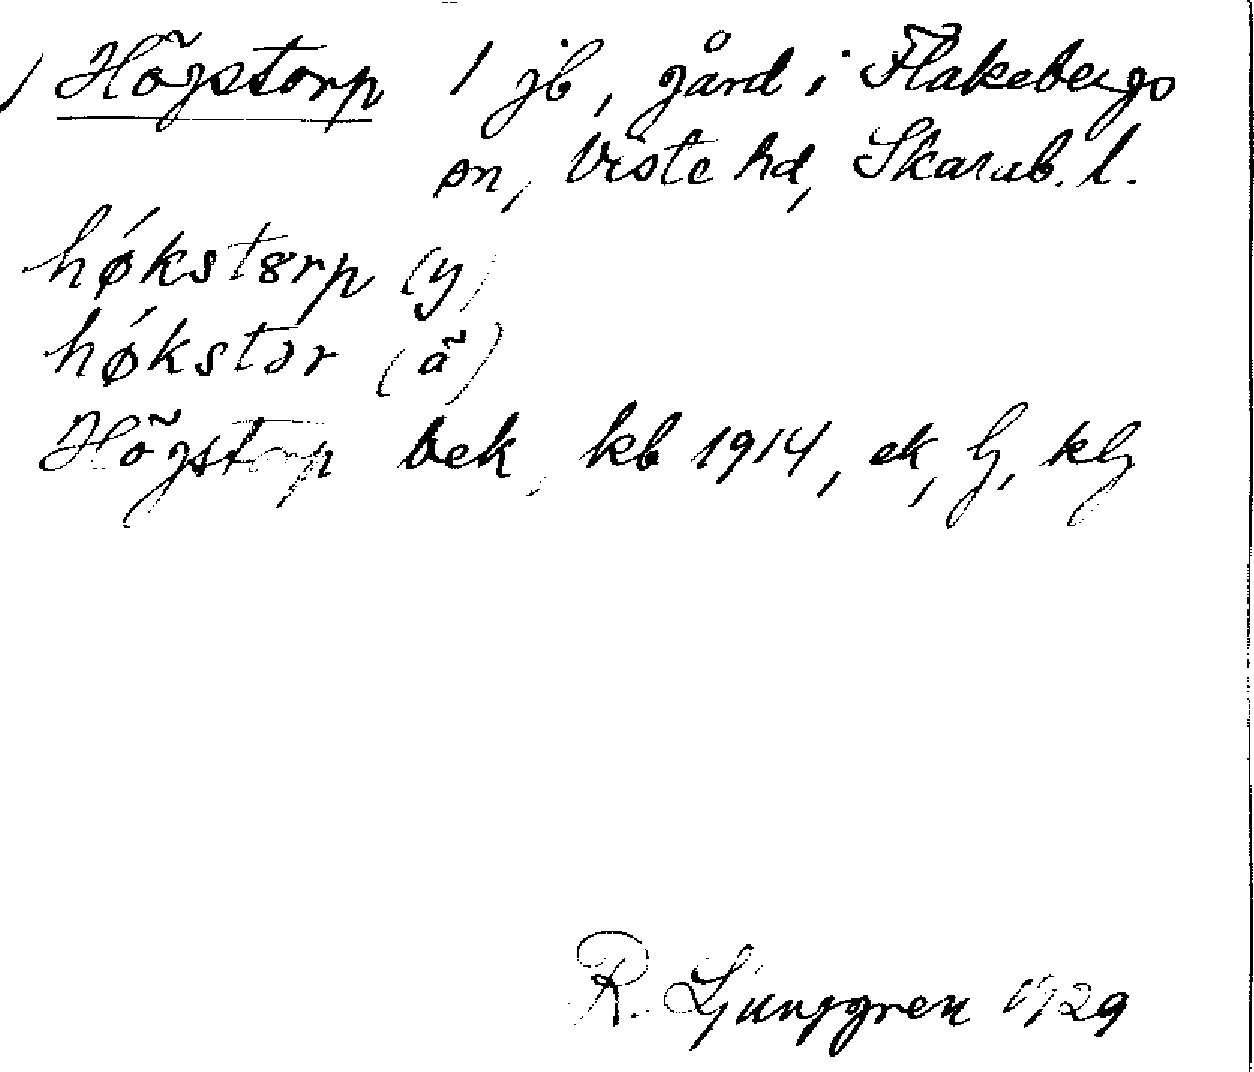 Högstorp 1 jb, gård i Flakebergs
sn, Viste hd, Skarab. l.
hǿkstɵrp (y)
hǿkstɔr (ä)
Högstorp bek, kb 1914, ek, lj, klj
R. Ljunggren 1929